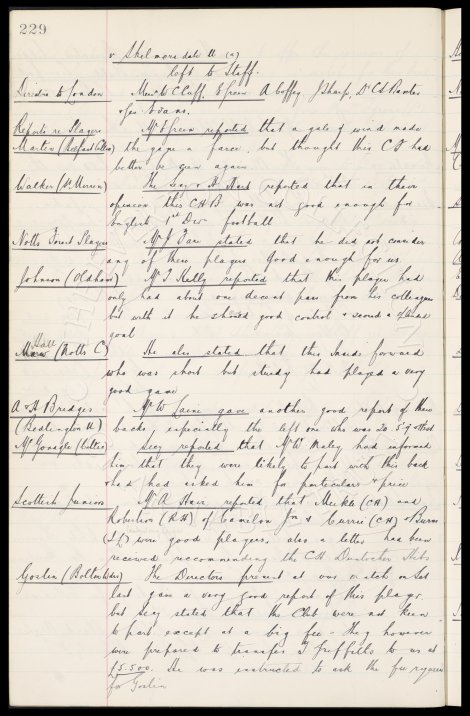 229
v Skelmersdale U (a)
left to Staff.
Directors to London Messrs Cuff, E Green A Coffey J Sharp, Dr C S Baxter
& Geo Evans.
Reports re Players Mr E Green reported that a gale of wind made
Martin (Belfast Celtic) the game a farce but thought this C F had
better be seen again
Walker (St Mirren) The Secy & H Hart reported that in their
opinion this C.H.B was not good enough for
English 1st Div football
Notts Forest Players Mr J stated that he did not consider
any of these players good enough for us.
Johnson (Oldham) Mr T Kelly reported that this player had
only had about one decent pass from his colleagues
but with it he showed good control & scored a good
goal
(Notts C) He also stated that this Inside forward
who was short but sturdy had played a very
good game
A & H Bridges Mr W gave another good report of these
(Bedlington U) backs, especially the left one who was 20. 5.9
McGonagle (Celtic) Secy reported that Mr W Maley had informed
him that they were likely to part with this back
& had asked him for particulars & price
Scottish Juniors Mr A reported that (C H) and
Robertson (R H) of Camelon Jnr & Currie (C H) & Burns
were good players, also a letter has been
received recommending the C H Duntocher Hibs
Goslin (Bolton Wdrs) The Directors present at our match on Sat
last gave a very good report of this player.
but Secy stated that the Club were not keen
to part except at a big fee. They however
were prepared to transfer J Griffiths to us at
£5.500. He was instructed to ask the fee required
for Goslin